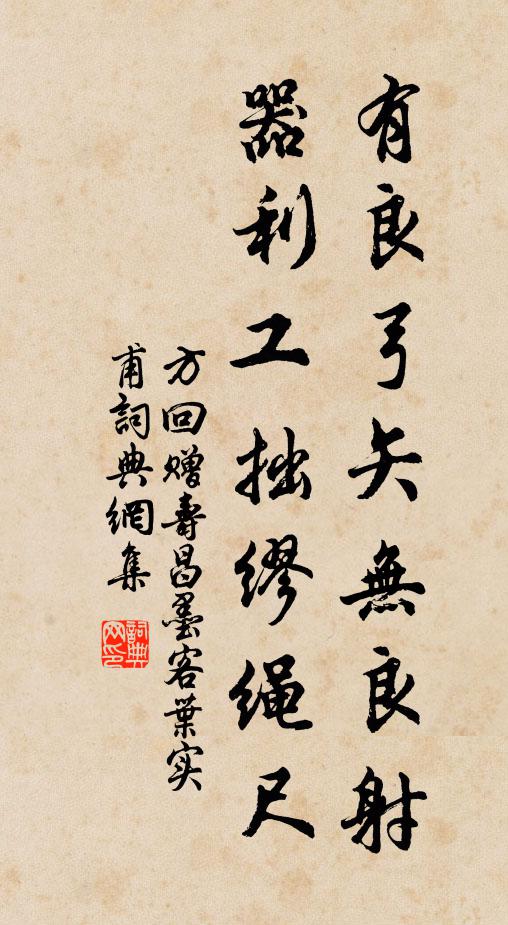 有良弓矢無良射
器利工拙繆绳尺
方回赠壽昌墨客葉实
甫詞典網集
詞典網印